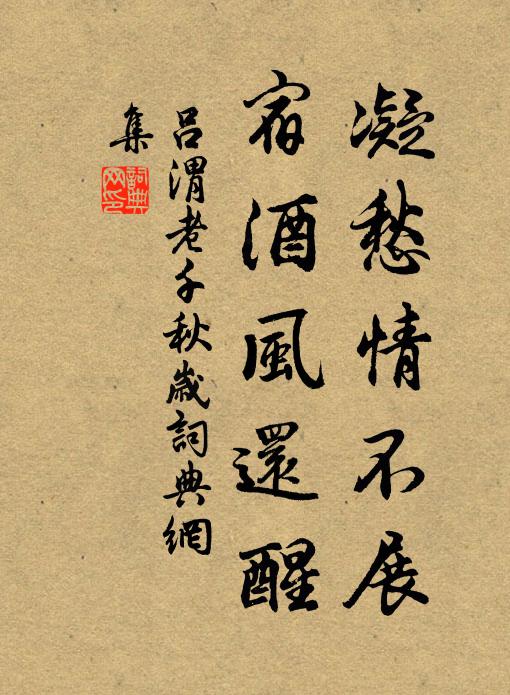 凝愁情不展
宿酒風還醒
呂渭老千秋歲詞典網
集
詞典網印